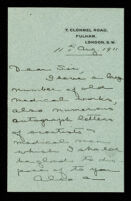 7, CLONMEL ROAD,
FULHAM,
LONDON, S.W.
11th Aug. 1911
Dear Sir
I have a large
number of old
medical works,
also numerous
autograph letters
of scientists &
medical men
which I should
be glad to dis
pose of to you
Also